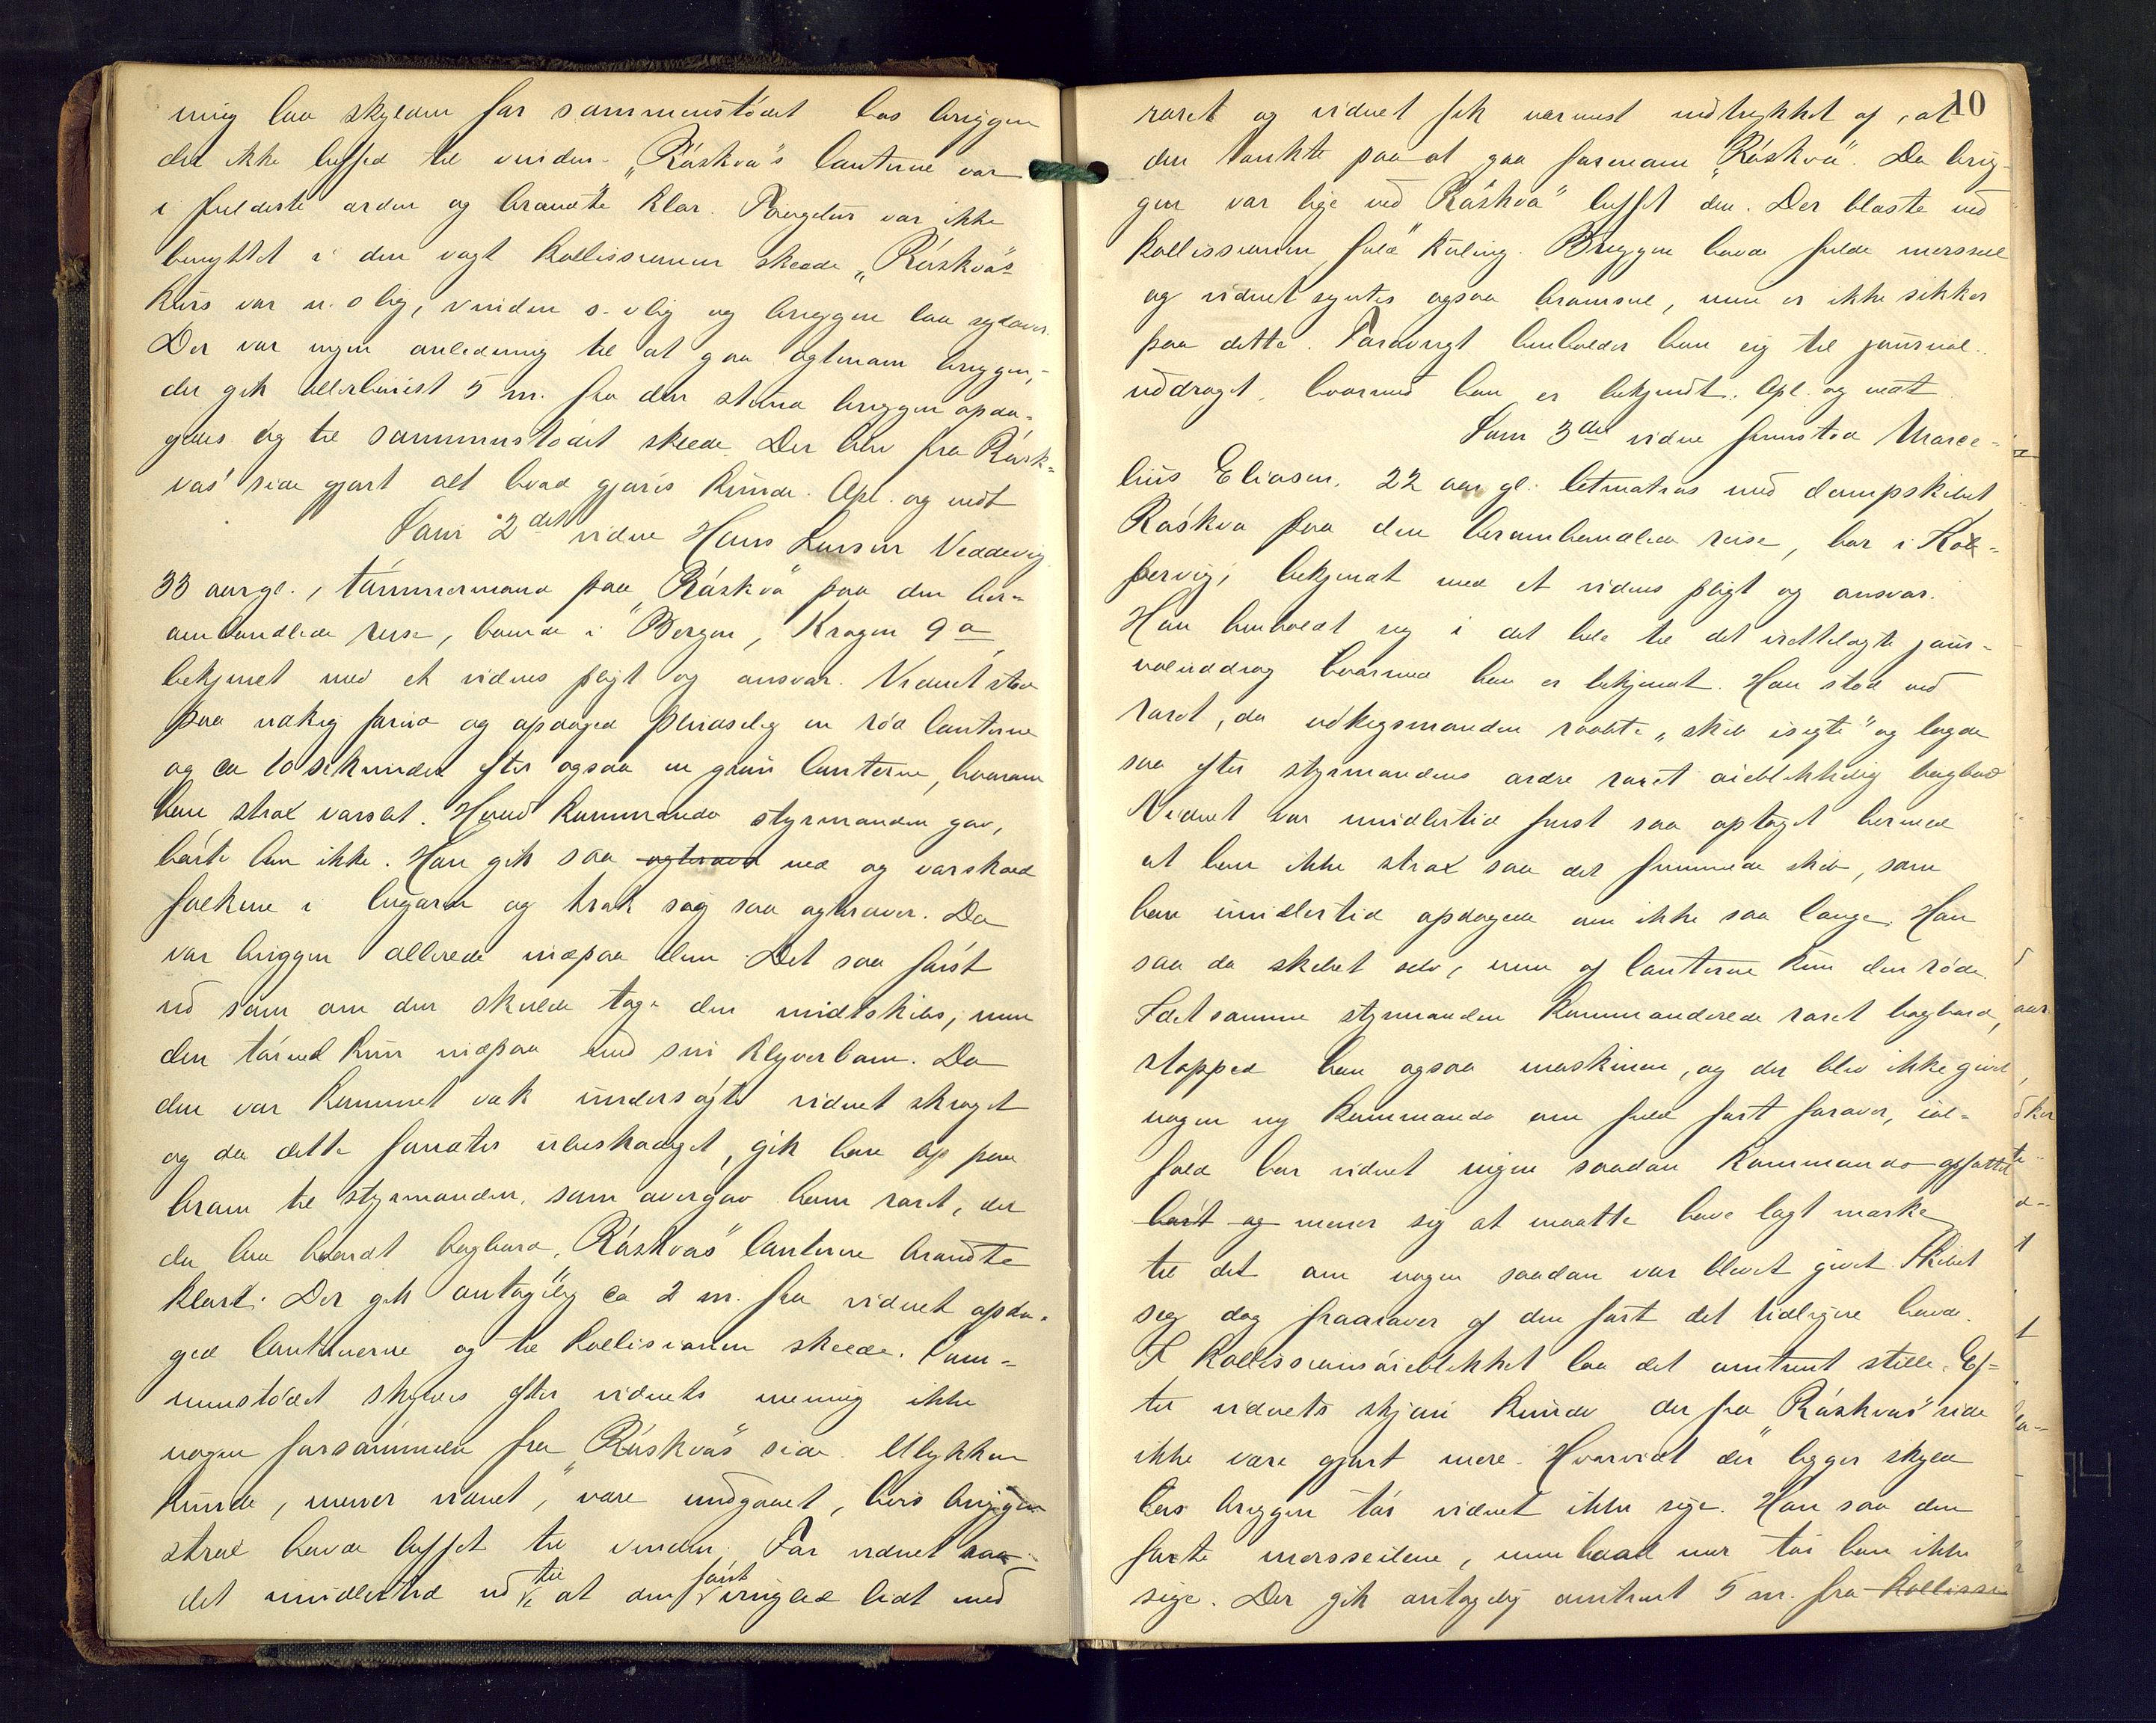 ning laa skylden for sammenstödet hos briggen
der ikke luffed til vinden. "Röskva"s lanterne var
i fuldeste orden og brandte klar. Taagelur var ikke
benyttet i den vagt kollissionen skeede. "Röskva"s
kurs var n.o lig, vinden s. vlig og briggen laa sydover.
Der var ingen anledning til at gaa agtenom briggen,-
der gik allerhöiest 5 m. fra den stund briggen opda-
gedes og til sammenstödet skeede. Der blev fra Rösk-
vas' side gjort alt hvad gjöres kunde. Opl. og vedt
Som 2det vidne Hans Larsen Veddevig
33 aar gl., tömmermand paa "Röskva" paa den her-
omhandlede reise, boende i Bergen, Krogen 9a,
bekjendt med et vidnes pligt og ansvar. Vidnet stod
paa udkig forud og opdaged pludselig en röd lanterne
og ca 10 sekunder efter ogsaa en grön lanterne, hvorom
han strax varslet. Hvad kommando styrmanden gav,
hörte han ikke. Han gik saa agterover ned og varskoed
folkene i lugaren og trak sig saa agterover. Da
var briggen allerede indpaa dem. Det saa först
ud som om den skulde tage dem midtskibs, men
den törned kun indpaa med sin klyverbom. Da
den var kommet væk undersögte vidnet skroget
og da dette fandtes ubeskadiget, gik han op paa
broen til styrmanden, som overgav ham roret, der
da laa haardt bagbord. "Röskvas" lanterne brandte
klart. Der gik antagelig ca 2 m. fra vidnet opda-
ged lanternerne og til kollisionen skeede. Sam-
menstödet skyldes efter vidnets mening ikke
nogen forsömmelse fra "Röskvas" side. Ulykken
kunde, mener vidnet, være undgaaet, hvis briggen
strax havde luffet til vinden. For vidnet saa
det imidlertid ud til at den först vinglede lidt med
10
roret og vidnet fik nærmest indtrykket af, at
den tænkte paa at gaa forenom "Röskva". Da brig-
gen var lige ved "Röskva" luffet den. Der blæste ved
kollissionen fuld kuling. Briggen havde fulde mersseil
og vidnet syntes ogsaa bramseil, men er ikke sikker
paa dette. Forövrigt henholder han sig til journal-
uddraget, hvormed han er bekjendt. Opl. og vedt
Som 3die vidne fremstod Marce-
lius Eliasen, 22 aar gl. letmatros med dampskibet
Röskva paa den heromhandlede reise, bor i Kol-
pervig, bekjendt med et vidnes pligt og ansvar.
Han henholdt sig i det hele til det irettelagte jour-
naluddrag hvormed han er bekjendt. Han stod ved
roret, da udkigsmanden raabte "skib isigte" og lagde
saa efter styrmandens ordre roret öieblikkelig bagbord
Vidnet var imidlertid först saa optaget hermed
at han ikke strax saa det fremmede skib, som
han imidlertid opdagede om ikke saa længe. Han
saa da skibet selv, men af lanterne kun den röde.
I det samme styrmanden kommanderede roret bagbord,
stopped han ogsaa maskinen, og der blev ikke givet
nogen ny kommando om fuld fart forover, ial-
fald har vidnet ingen saadan kommando opfattet
hört og mener sig at maatte have lagt mærke
til det om nogen saadan var blevet givet. Skibet
seg dog fraarover af den fart det tidligere havde.
I kollissionsöieblikket laa det omtrent stille. Ef-
ter vidnets skjön kunde der fra "Röskvas" side
ikke være gjort mere. Hvorvidt der ligger skyld
hos briggen tör vidnet ikke sige. Han saa den
förte mersseilene, men hvad mer tör han ikke
sige. Der gik antagelig omtrent 5 m. fra kollissi